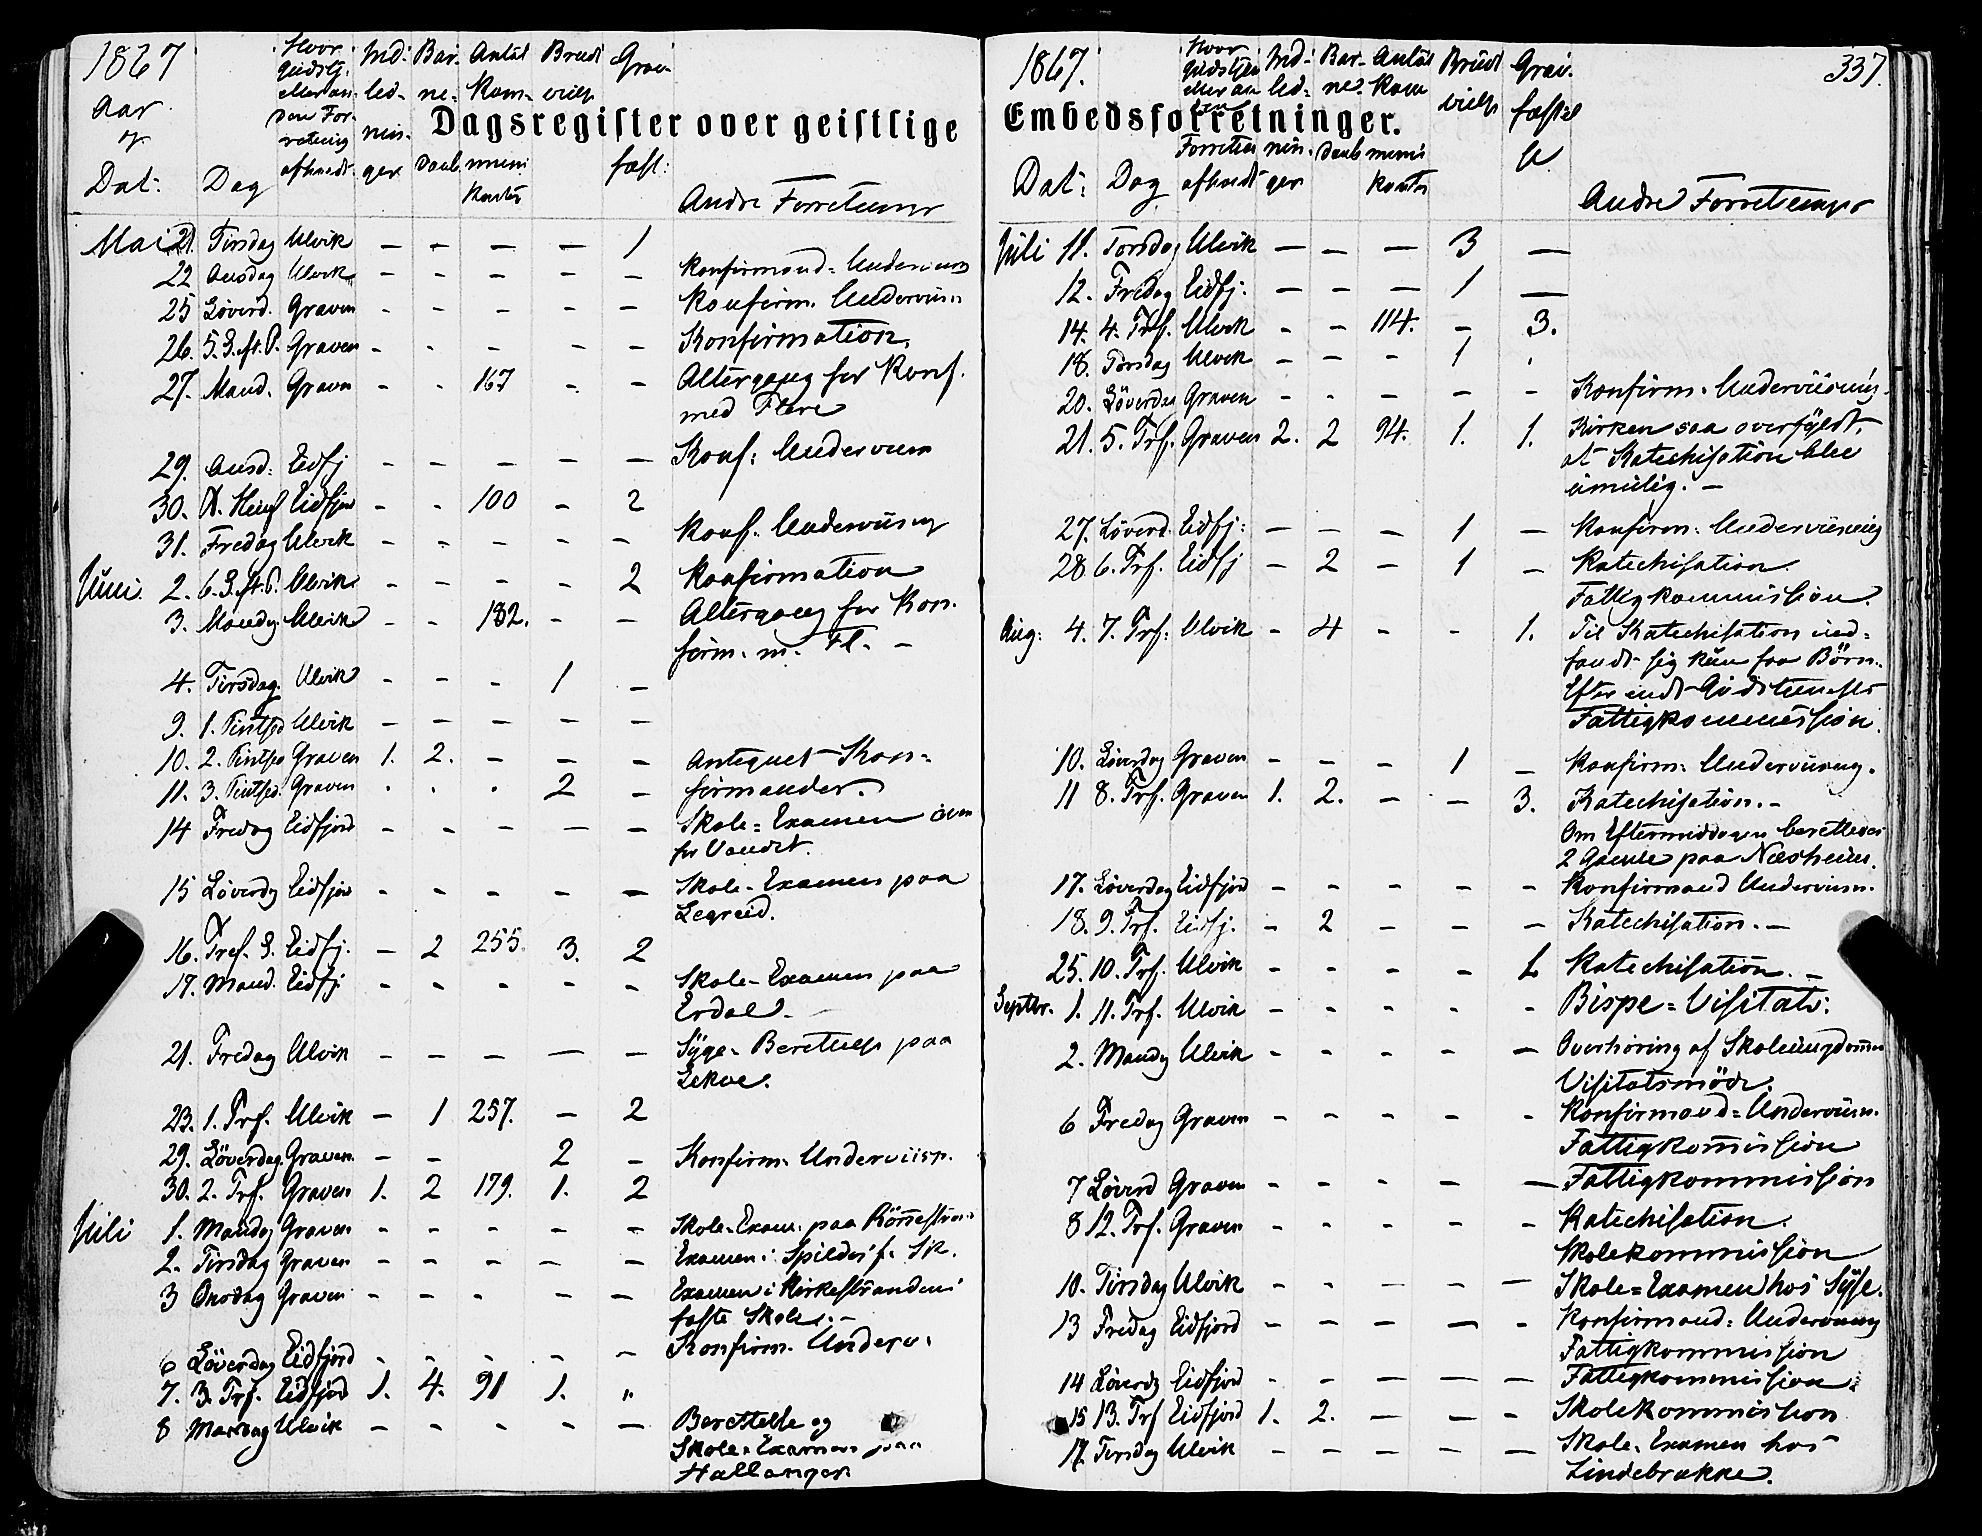 1867
Aar
og
Dat: Dag
Hvor
Gudstj.
eller an
den For-
retning
afholdt.
Ind-
led-
nin-
ger
Bar-
ne-
daab
Antal
Kom-
muni
kanter
Brud
vielse
Grav-
fæst:
Andre Forretninger
Dagsregister over geistlige
Mai 21. Tirsdag Ulvik — — — — 1
22 Onsdag Ulvik - - - - - Konfirmand-Underviisn
25 Löverd. Graven - - - - - Konfirm. Underviisn
26. 5. S. ft. P. Graven - - - - - Konfirmation.
27. Mand. Graven - - 167 - - Altergang for Konf.
med Flere
29. Onsd: Eidfj - - - - - Konf: Underviisn
30. Chr. Himf Eidfjord - - 100 - 2
31. Fredag Ulvik - - - - - Konf. Underviisng
Juni. 2. 6. S. ft. P. Ulvik - - - - 2 Konfirmation
3. Mandag Ulvik - - 182. - - Altergang for Kon-
firm. m. Fl. -
4. Tirsdag Ulvik - - - 1 -
9. 1. Pintsed Ulvik - - - - -
10. 2. Pintsed Graven 1. 2. - - - Antegnet Kon-
11. 3. Pintsed. Graven . . . 2 - firmander.
14 Fredag Eidfjord - - - - - Skole-Examen oven
for Vandet.
15 Löverdg Eidfjord - - - - - Skole-Examen paa
Legreid.
16. Tref. S. Eidfj. - 2 255. 3. 2
17. Mand. Eidfj - - - - - Skole-Examen paa
Erdal. -
21. Fredag Ulvik - - - - - Syge-Berettelse paa
Lekve.
23. 1. Trf. Ulvik - 1 257. - 2
29. Löverdag Graven - - 2 - Konfirm. Underviisn.
30. 2. Trf. Graven 1. 2 179. 1. 2
Juli 1. Mandag Graven - - - - - Skole-Exam. paa Rönnestran
2. Tirsdag Graven - - - - - Examen i Spildesf. Sk.
3 Onsdag Graven - - - - - Examen i Kirkestrandens
faste Skole. -
6 Löverdag Eidfjord - - - - - Konfirm. Underv:
7. 3. Trf. Eidfjord 1. 4. 91 1. "
8 Mandag Ulvik - - - - - Berettelse og
Skole-Examen paa
Hallanger
1867. 337.
Hvor
Gudstjen
eller an
den
Forretn
afholdt
Ind-
led-
nin-
ger
Bar-
ne-
daab
Antal
Kom
muni
kanter
Brud
vielse
Grav-
fæstel
se
Dat: Dag
Andre Forretninger
Embedsforretninger.
Juli 11. Torsdag Ulvik — — — 3 —
12. Fredag Eidfj: — — — 1 —
14. 4. Trf. Ulvik - - 114. - 3.
18. Torsdag Ulvik - - - 1 .
20. Löverdag Graven - - - - - Konfirm. Underviisning.
21. 5. Trf. Graven 2. 2 94. 1. 1. Kirken saa overfyldt,
at Katechisation blev
umulig. -
27. Löverd. Eidfj: - - - 1 - Konfirm: Underviisning
28. 6. Trf. Eidfj - 2 - 1 - Katechisation.
Fattigkommission.
Aug: 4. 7. Trf: Ulvik - 4 - - 1. Til Katechisation ind-
fandt sig kun faa Börn.
Efter endt Gudstjeneste
Fattigkommission.
10. Löverdag Graven - - - 1 - Konfirm: Underviisng.
11 8. Trf. Graven 1. 2. - - 3. Katechisation. -
Om Eftermiddagen berettedes
2 Gamle paa Næsheim.
17. Löverdag Eidfjord - - - - - Konfirmand Underviisn.
18. 9. Trf. Eidfj. - 2 - - - Katechisation. -
25. 10. Trf. Ulvik - - - - 1. Katechisation. -
Septbr. 1. 11. Trf. Ulvik - - - - - Bispe-Visitats:
2. Mandg Ulvik - - - - - Overhöring af Skoleungdommen
Visitatsmöde.
6 Fredag Graven - - - - - Konfirmand-Underviisn.
Fattigkommission
7 Löverd Graven - - - - - Fattigkommission
8 12. Trf. Graven - - - - - Katechisation.
Skolekommission
10. Tirsdag Ulvik - - - - - Skole-Examen hos Sysse.
13 Fredag Eidfjord - - - - - Konfirmand: Underviisng
Fattigkommission
14 Löverdg Eidfjord - - - - - Fattigkommission.
15 13. Trf Eidfjord 1. 2. - - - Skolekommission
17. Tirsdag Ulvik - - - - - Skole-Examen hos
Lindebrække.